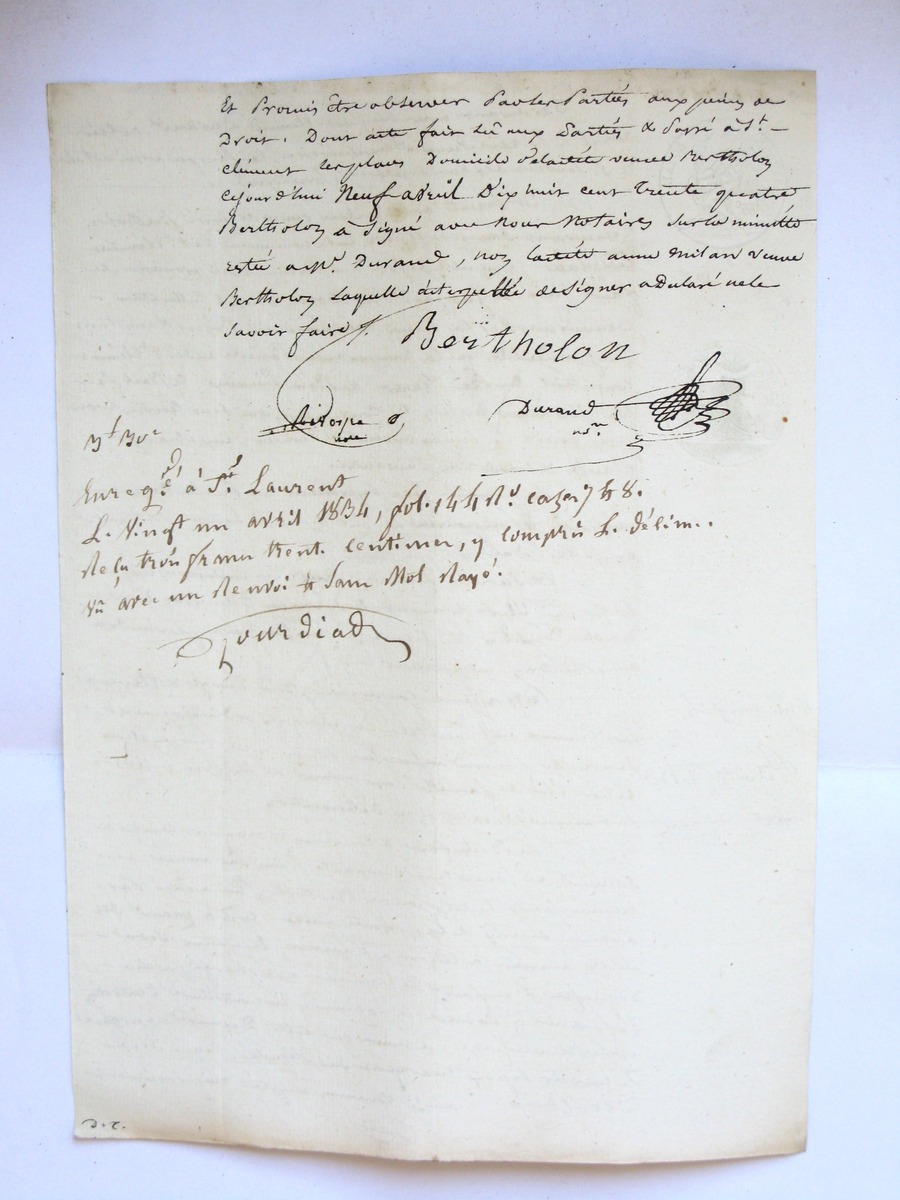 Et Promis être observer Par les Parties aux peines de
Droit. Dont acte fait Lû aux Parties & Passé à St.
clément les places Domicile de ladite veuve Bertholon
Cejourd'hui Neuf avril Dix huit cent Trente quatre
Bertholon à Signé avec Nous Notaires Sur la minutte
restée a Me. Durand, non ladite anne milan veuve
Bertholon Laquelle interpellée de signer a Declaré ne le
Savoir faire /.
Bertholon
nre
Durand
nre
3f 30c
Enregé. à St. Laurent
Le Vingt un avril 1834, fol. 144 Ro. cases 7 & 8.
Reçu trois francs trente centimes, y compris le décime.
Vû avec un Renvoi & Sans Mot Rayé.
D. C.